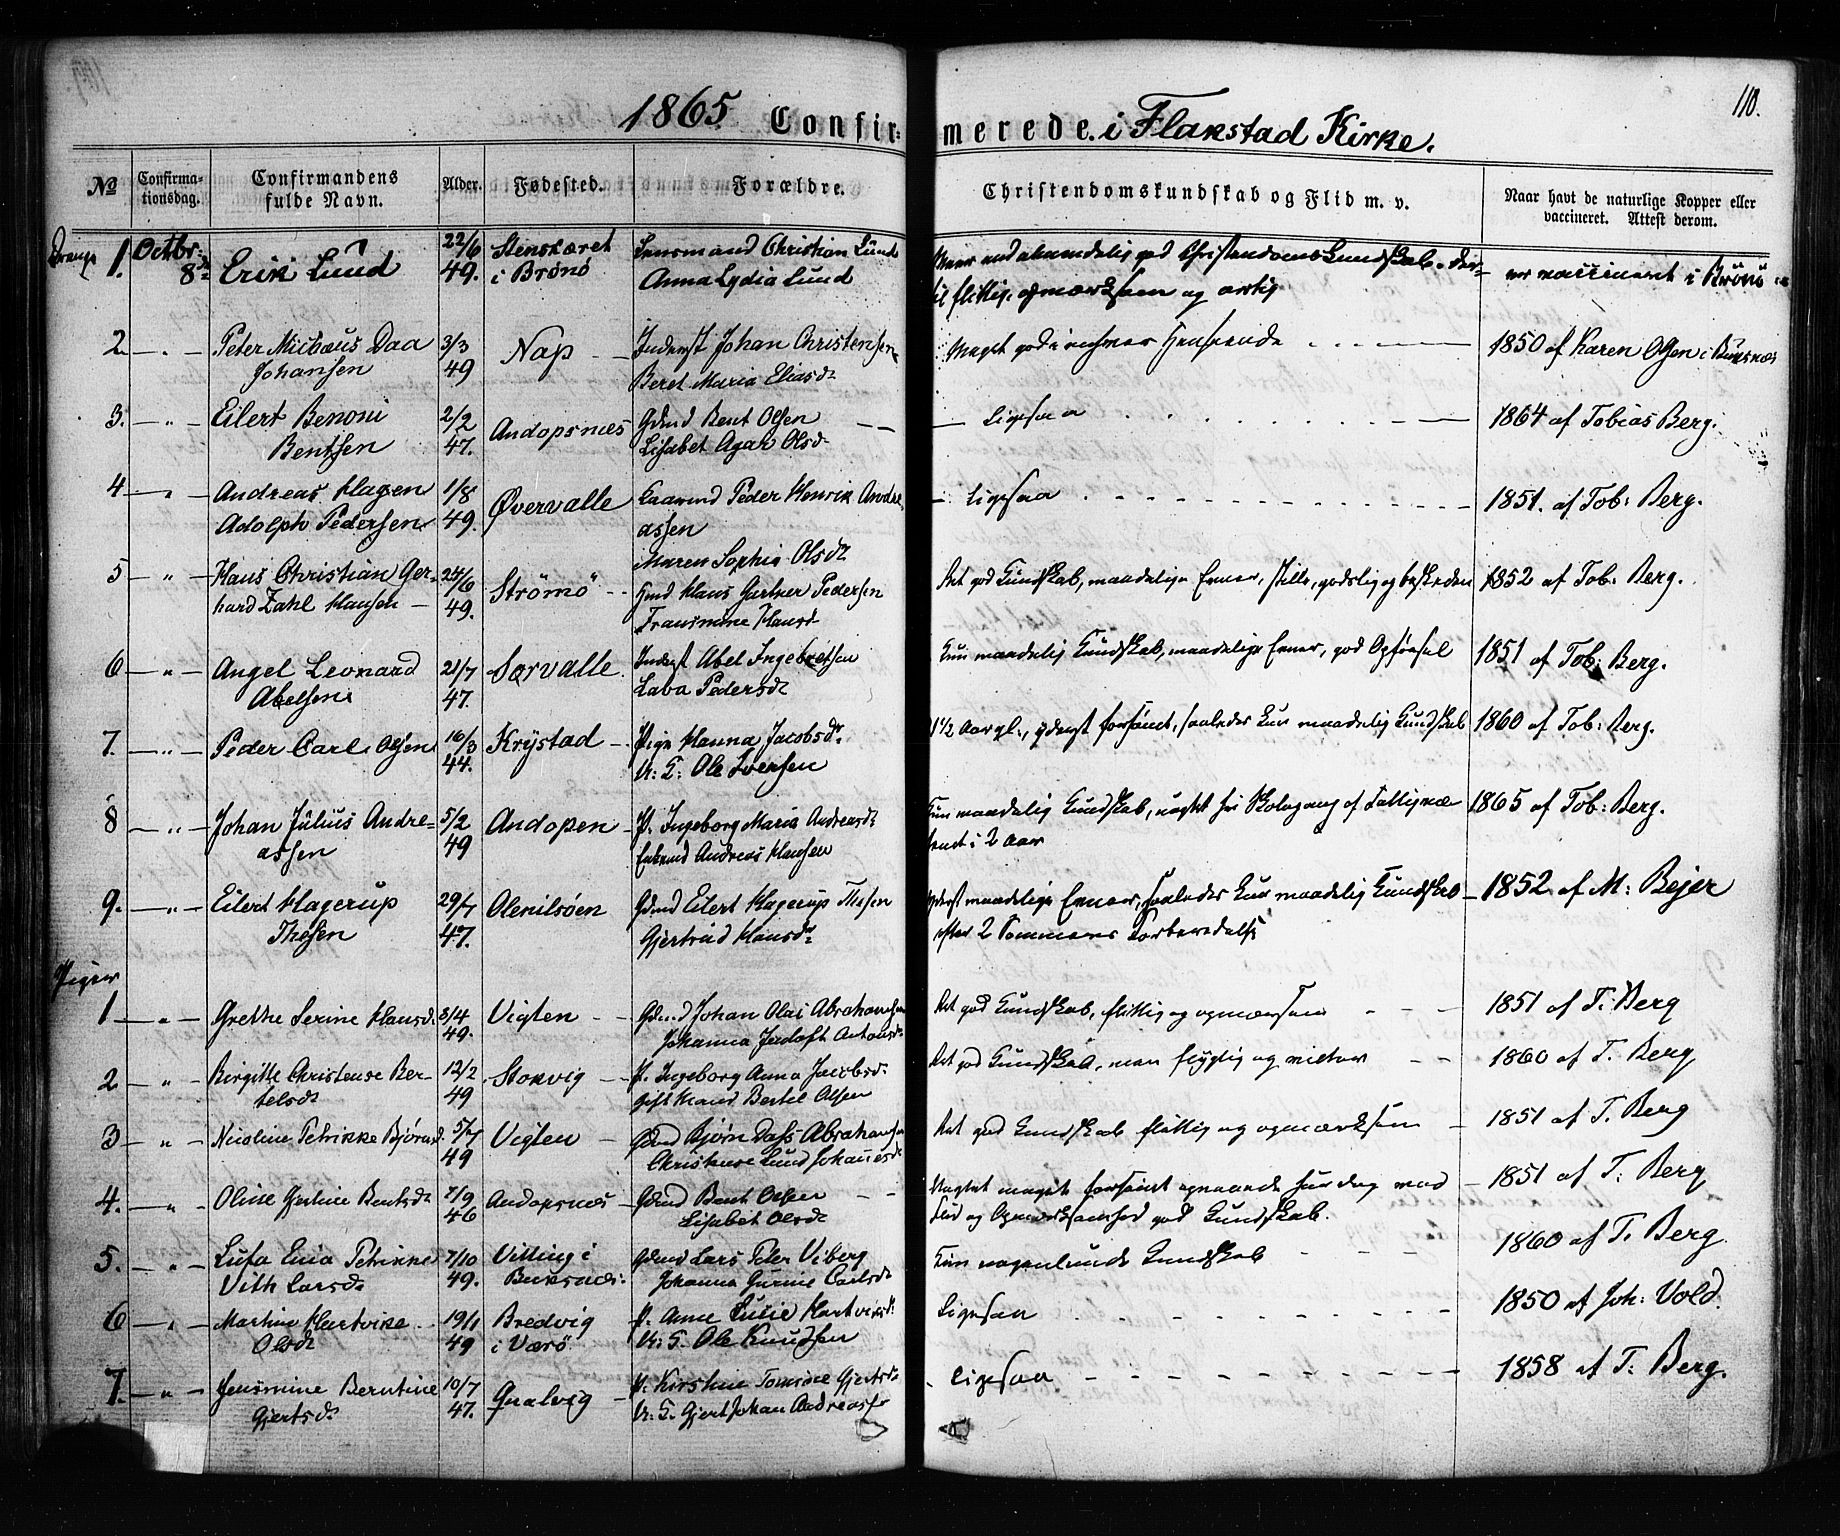 110.
1865 Confir=merede. i Flakstad Kirke.
№
Confirma-tionsdag.
Confirmandens fulde Navn.
Alder.
Fødested.
Forældre.
Christendomskundskab og Flid m. v.
Naar havt de naturlige Kopper eller vaccineret. Attest derom.
Drenge
1. Octbr: 8de Erik Lund 22/6 49. Stenskæret i Brønø
Lensmand Christian Lund
Anna Lydia Lund
god Christendomskundskab. Der-
til flittig, opmærksom og artig
er vaccineret i Brønø
2 — " — Peter Michaus Daa Johansen 3/3 49 Nap
Inderst Johan Christensen
Beret Maria Eliasdr
Meget god i enhver Henseende
1850 af Karen Olsen i Buksnæs
3. — " — Eilert Benoni Bentsen 2/2 47. Andopsnæs
Gdmd Bent Olsen
Lisabet Agar Olsdr
Ligesaa
1864 af Tobias Berg.
4 — " — Andreas Hagen Adolph Pedersen 1/8 49. Øvervalle
Peder Henrik Andre-
assen
Maren Sophie Olsdr
Ligesaa
1851. af Tob: Berg.
5 — " — Hans Christian Ger-hard Zahl Hansen 24/6 49. Strömö
Hmd Hans Gertner Pedersen
Fransmine Hansd
Ret god Kundskab, maadelige Evner, stille, godslig og beskeden
1852 af Tob: Berg.
6 — " — Angel Leonard Abelsen 21/7 47. Sørvalle
Inderst Abel Ingebretsen
Lava Pedersdr
Kun maadelig Kundskab, maadelige Evner, god Opförsel
1851 af Tob: Berg.
7. — " — Peder Carl Olsen 16/3 44. Krystad
Pige Hanna Jacobsdr
U: K: Ole Iversen
yderst forsömt, saaledes kun maadelig Kundskab
1860 af Tob: Berg.
8 — " — Johan Julius Andre=assen 5/2 49 Andopen
P. Ingeborg Maria Andreasdr
Enkemd Andreas Hansen
Kun maadelig Kundskab, nogtet fri Skolegang af Fattigvæ-
senet i 2 Aar
1865 af Tob: Berg.
9. — " — Eilert Hagerup Thesen 29/7 47. Olenilsöen
Gdmd Eilert Hagerup Thesen
Gjertrud Hansdr
Yderst maadelige Evner, saaledes kun maadelig Kundskab
efter 2 Sommeres Forberedelse
1852 af M: Bejer
Piger
1 — " — Grethe Serine Hansd. 3/4 49. Vigten
Gdmd Johan Olai Abrahamsen
Johanna Antonsdr
Ret god Kundskab, flittig og opmærksom
1851 af T: Berg
2 — " — Birgitte Christense Ber-telsdr 12/2 49 Storvig
P. Ingeborg Anna Jacobsd.
Gift Mand Bertel Olsen
Ret god Kundskab, men flygtig og
1860 af T. Berg
3 — " — Nicoline Petrikke Björnsd. 5/7 49 Vigten
Gdmd Bjørn Dass Abrahamsen
Christense Lund Johannesdr
Ret god Kundskab flittig og opmærksom
1851 af T. Berg
4. — " — Oline Gjertine Bentsdr 7/9 46 Andopsnæs
Gdmd Bent Olsen
Lisabet Olsdr
Uagtet meget forsömt opnaaede hun dog ved
Flid og Opmærksomhed god Kundskab.
1851 af T. Berg
5. — " — Lufa Enia Petrikke Vith Larsdr 7/10 49. Villing i Buksnæs.
Gdmd Lars Peter Viberg
Johanna Gurine Carlsdr
Kun nogenlunde Kundskab
1860 af T. Berg
6 — " — Martine Hartvike Olsdr 19/1 49 Bredvig i Værö
P. Anne Lucie Hartvigsdr
U: K. Ole Knudsen
Ligesaa
1850 af Joh: Vold.
7. — " — Jensmine Berntine Gjertsdr 10/7 47. Qvalvig
P. Kirstine Tomine Gjertsdr
U: K. Gjert Johan Andreasen
Ligesaa
1858 af T: Berg.